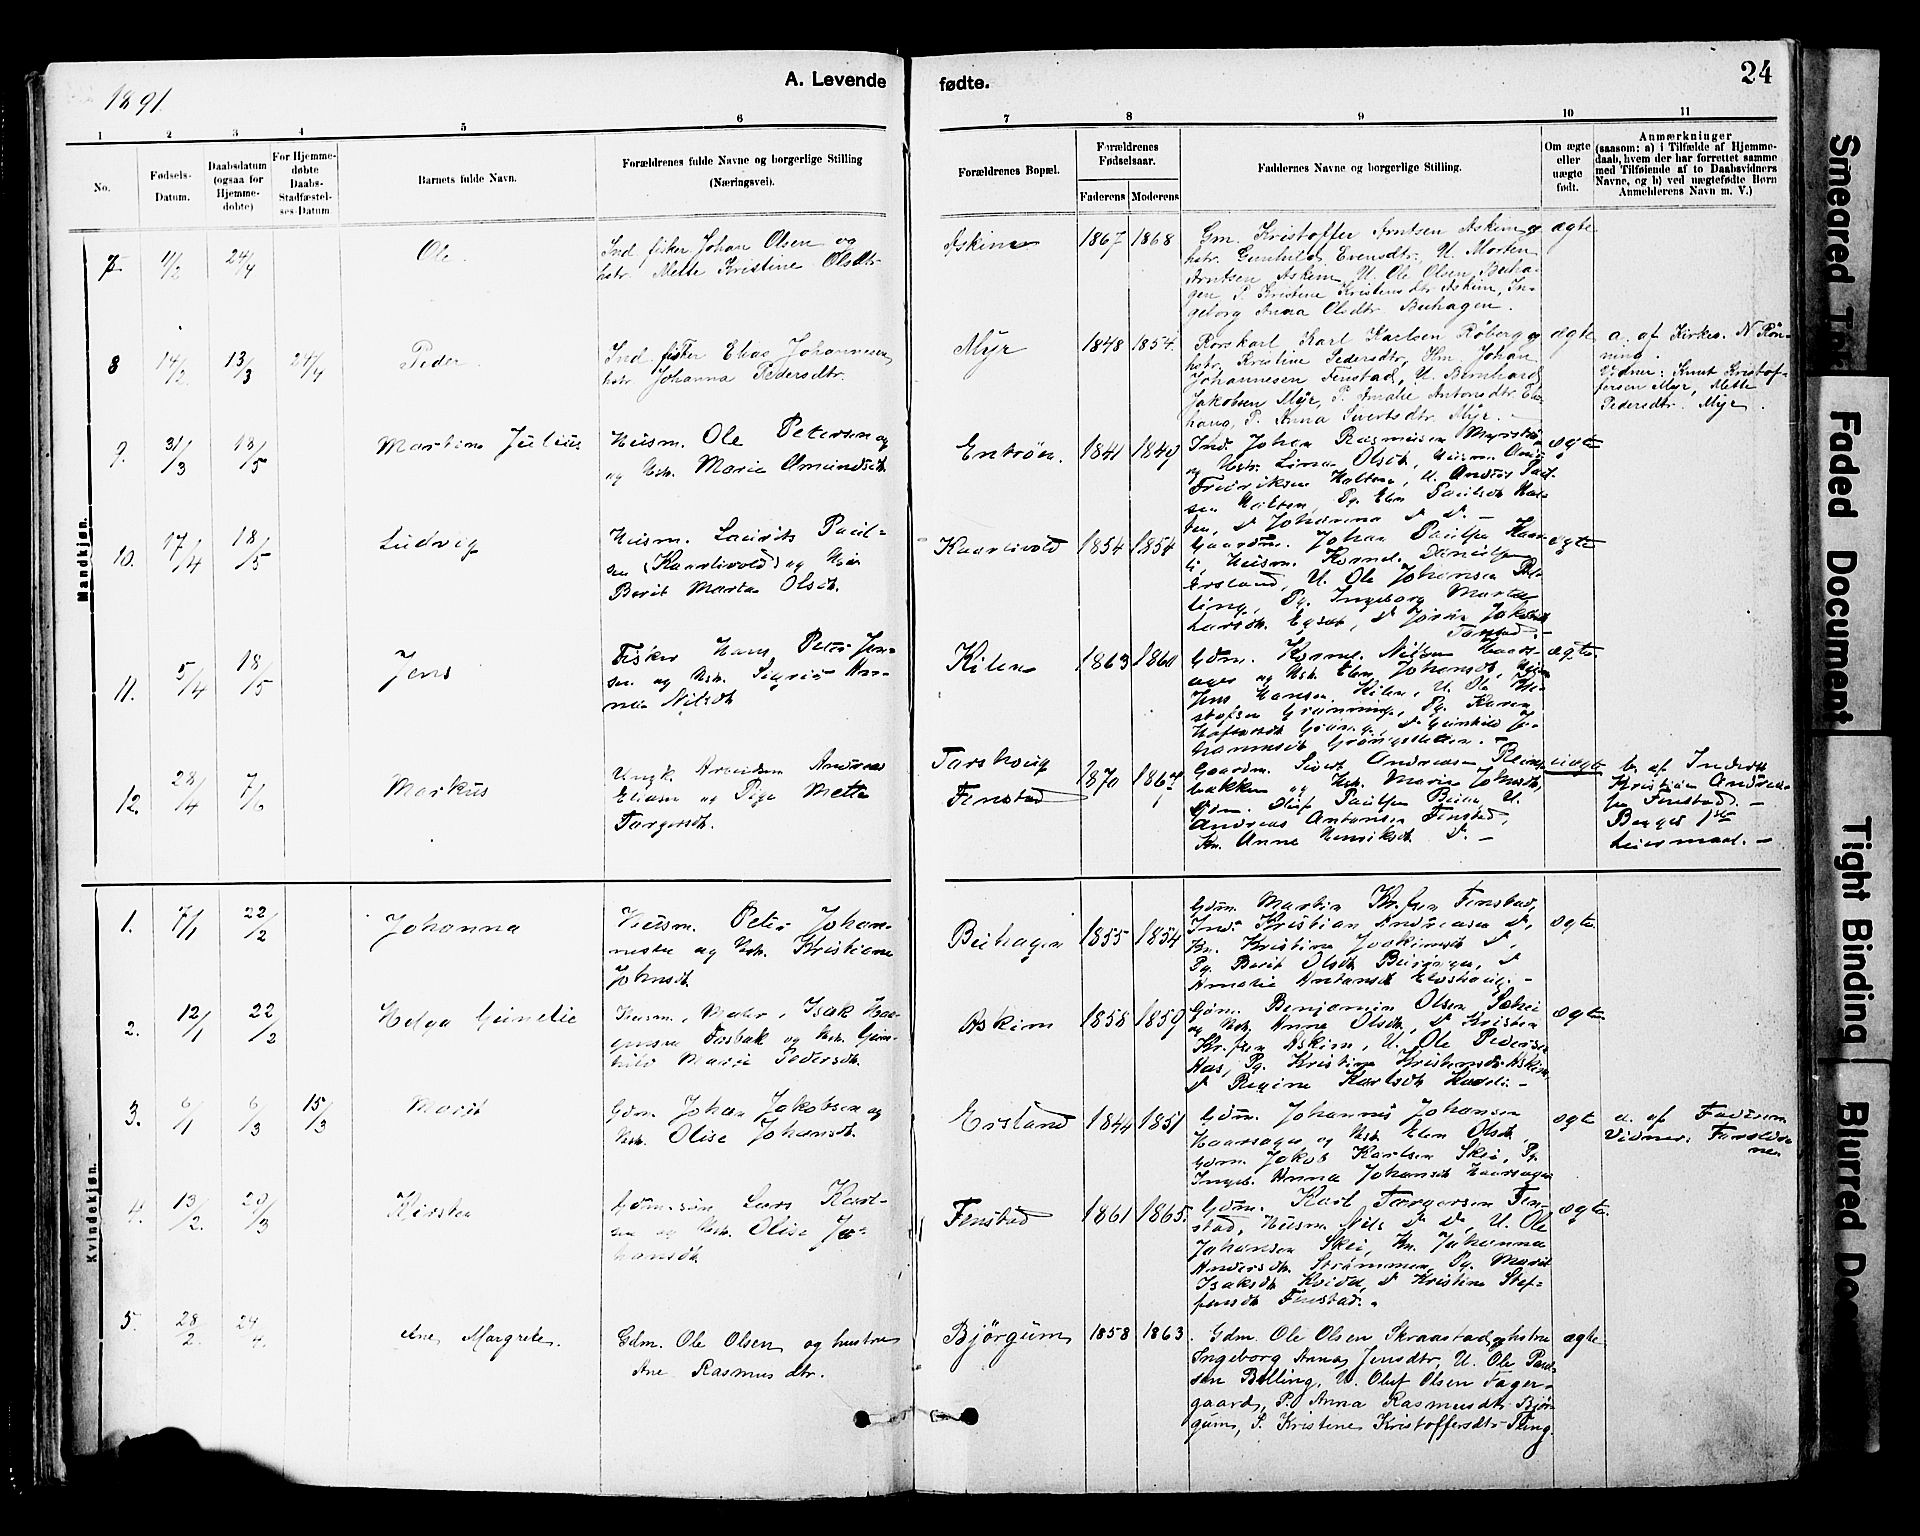 1891.
A. Levende fødte.
24
1 2 3 4 5 6 7 8 9 10 11
No.
Fødsels-
Datum.
Daabsdatum
(ogsaa for
Hjemme-
døbte)
For Hjemme-
døbte
Daabs-
Stadfæstel-
ses-Datum.
Barnets fulde Navn.
Forældrenes fulde Navne og borgerlige Stilling
(Næringsvei).
Forældrenes Bopæl.
Forældrenes
Fødselsaar.
Faderens Moderens
Faddernes Navne og borgerlige Stilling.
Om ægte
eller
uægte
født.
Anmærkninger
(saasom: a) i Tilfælde af Hjemme-
daab, hvem der har forrettet samme
med Tilføiende af to Daabsvidners
Navne, og b) ved uægtefødte Børn
Anmelderens Navn m. V.)
Mandkjøn.
7. 11/2 24/4
Ole.
Ind. fisker Johan Olsen og
hstr. Mette Kristine Olsdtr.
Askim
1867 1868
Gm. Kristoffer Arntsen Askim og
hstr. Gunhild Evensdtr., U. Morten
Arntsen Askim, U. Ole Olsen Beiha-
gen, P. Kristine Kristensdtr. Askim, In-
geborg Anna Olsdtr. Beihagen.
ægte
8 14/2 13/3 24/4
Peder.
Ind. fisker Elias Johannesen
hstr. Johanna Pedersdtr.
Myr
1848 1854.
Korskarl Karl Karlsen Röberg og
hstr. Kristine Pedersdtr., Hm. Johan
Johannesen Fenstad, U. Bernhard
Jakobsen Myr, P. Amalie Antonsdtr. El-
haug, P. Anna Sivertsdtr. Myr. –
ægte
a. af Kirkes. N Røn-
ning.
Vidner: Knut Kristof-
fersen Myr, Mette
Pedersdtr. Myr.
9. 31/3 18/5
Martin Julius
Husm. Ole Petersen og
og Hstr. Marie Amundsdt.
Entrön.
1841 1849
Ind. Johan Rasmussen
og Hstr. Lina Olsdt., Husm.
Fredriksen Holten, U. Andreas Paul-
sen Holten, Pg. Elen Paulsdt.
Johanna d. d. –
ægte
10. 17/4 18/5
Ludvig
Husm. Laurits Paul-
sen (Kaarlivold) og Hstr.
Berit Marta Olsdt.
Kaarlivold
1854 1854
Gaardm. Johan Paulsen Kaar-
li, Husm. Kornel. Danielsen
Ersland, U. Ole Johansen Bel-
ling, Pg. Ingeborg Marta
Larsdt. Egset, d. Jörine Jakobsdt.
Fenstad. –
ægte
11. 5/4 18/5
Jens
Fisker Hans Peter Jen-
sen og Hstr. Sigrid An-
na Nilsdt.
Kilen
1863 1860
Gdm. Kornel. Nilsen Haars-
ager og Hstr. Elen Johansdt.,
Jens Hansen Kilen, U. Ole Kri-
stofsen Grønning, Pg. Karen
d. Gunhild Jo-
hannesdt. Grønningsletten. –
ægte.
12. 28/4 7/6
Markus
Ungk. Arbeider Andreas
Eliasen og Pige Mette
Torgersdt.
Torshaug
Fenstad
1870 1867
Gaardm. Sivert Andreasen Reins-
bakken og Hstr. Marie Johnsdt.,
Gdm. Oluf Paulsen Beian, U.
Andreas Antonsen Fenstad,
Kn. Anne Henriksdt. d. –
uægte
b. af Inderst
Kristian Andrea-
sen Fenstad. –
Begges 1ste
Leiermaal. –
Kvindekjøn.
1. 7/1 22/2
Johanna
Husm. Peter Johan-
nesen og Hstr. Kristiane
Johnsdt.
Beihagen
1855 1854
Gdm. Martin Kr.sen Fenstad,
Ind. Kristian Andreasen d.,
Kn. Kristine Joakimsdt. d.,
Pg. Berit Olsdt. Beihagen, d.
Amalie Antonsdt. Elvshaug. –
ægte.
2. 12/1 22/2
Helga Gunelie
Husm., Maler, Isak Haa-
gensen Fosbak og Hstr. Gun-
hild Marie Pedersdt.
Askim
1858 1859
Gdm. Benjamin Olsen Skei
og Hstr. Anne Olsdt., d. Kristen
Kr.sen Askim, U. Ole Pedersen
Aas, Pg. Kristine Kristensdt. Askim,
d. Regine Karlsdt. Kaarli –
ægte.
3. 6/1 6/3 15/3
Marit
Gdm. Johan Jakobsen og
Hstr. Olise Johansdt.
Ersland
1844 1851
Gdm. Johannes Johansen
Haarsager og Hstr. Elen Olsdt.,
Gdm. Jakob Karlsen Skei, Pg.
Ingeb. Anna Johansdt. Haarsager
ægte
a. af Faderen
Vidner: Forældre-
ne
4. 13/2. 29/3
Kirsten
Gdmssön Lars Karl-
sen og Hstr. Olise Jo-
hansdt.
Fenstad
1861 1865.
Gdm. Karl Torgersen Fen-
stad, Husm. Nils d. d., U. Ole
Johansen Skei, Kn. Johanna
Andersdt. Strömmen, Pg. Marit
Isaksdt. Kvidal, d. Kristine Stef-
fensdt. Fenstad. –
ægte.
5. 28/2. 24/4.
Ane Margrete.
Gdm. Ole Olsen og hustru
Ane Rasmusdtr.
Bjørgum
1858 1863.
Gdm. Ole Olsen Skraastad og hstru
Ingeborg Anna Jensdtr., U. Ole Paul-
sen Belling, U. Oluf Olsen Fager-
gaard, P. Anna Rasmusdtr. Bjør-
gum, P. Kristine Kristoffersdtr. Fling.
ægte
Smeared Text
Faded Document
Tight Binding
Blurred Doc